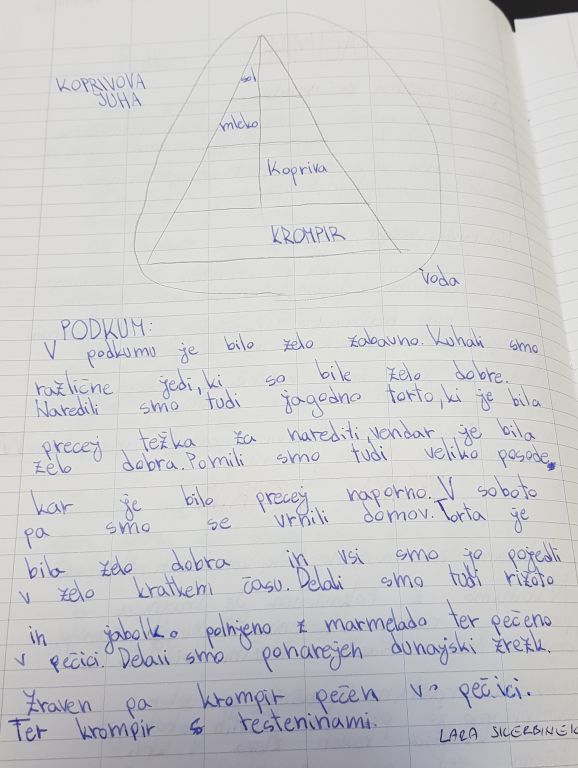 KOPRIVOVA
JUHA
sol
mleko
Kopriva
KROMPIR
Voda
PODKUM:
V podkumu je bilo zelo zabavno. Kuhali smo
različne jedi, ki so bile zelo dobre.
Naredili smo tudi jagodno torto, ki je bila
precej težka za narediti, vendar je bila
zelo dobra. Pomili smo tudi veliko posode,
kar je bilo precej naporno. V soboto
pa smo se vrnili domov. Torta je
bila zelo dobra in vsi smo jo pojedli
v zelo kratkem času. Delali smo tudi rižoto
in jabolko polnjeno z marmelado ter pečeno
v pečici. Delali smo ponarejen dunajski zrezk.
Zraven pa krompir pečen v pečici.
Ter krompir s testeninami.
LARA